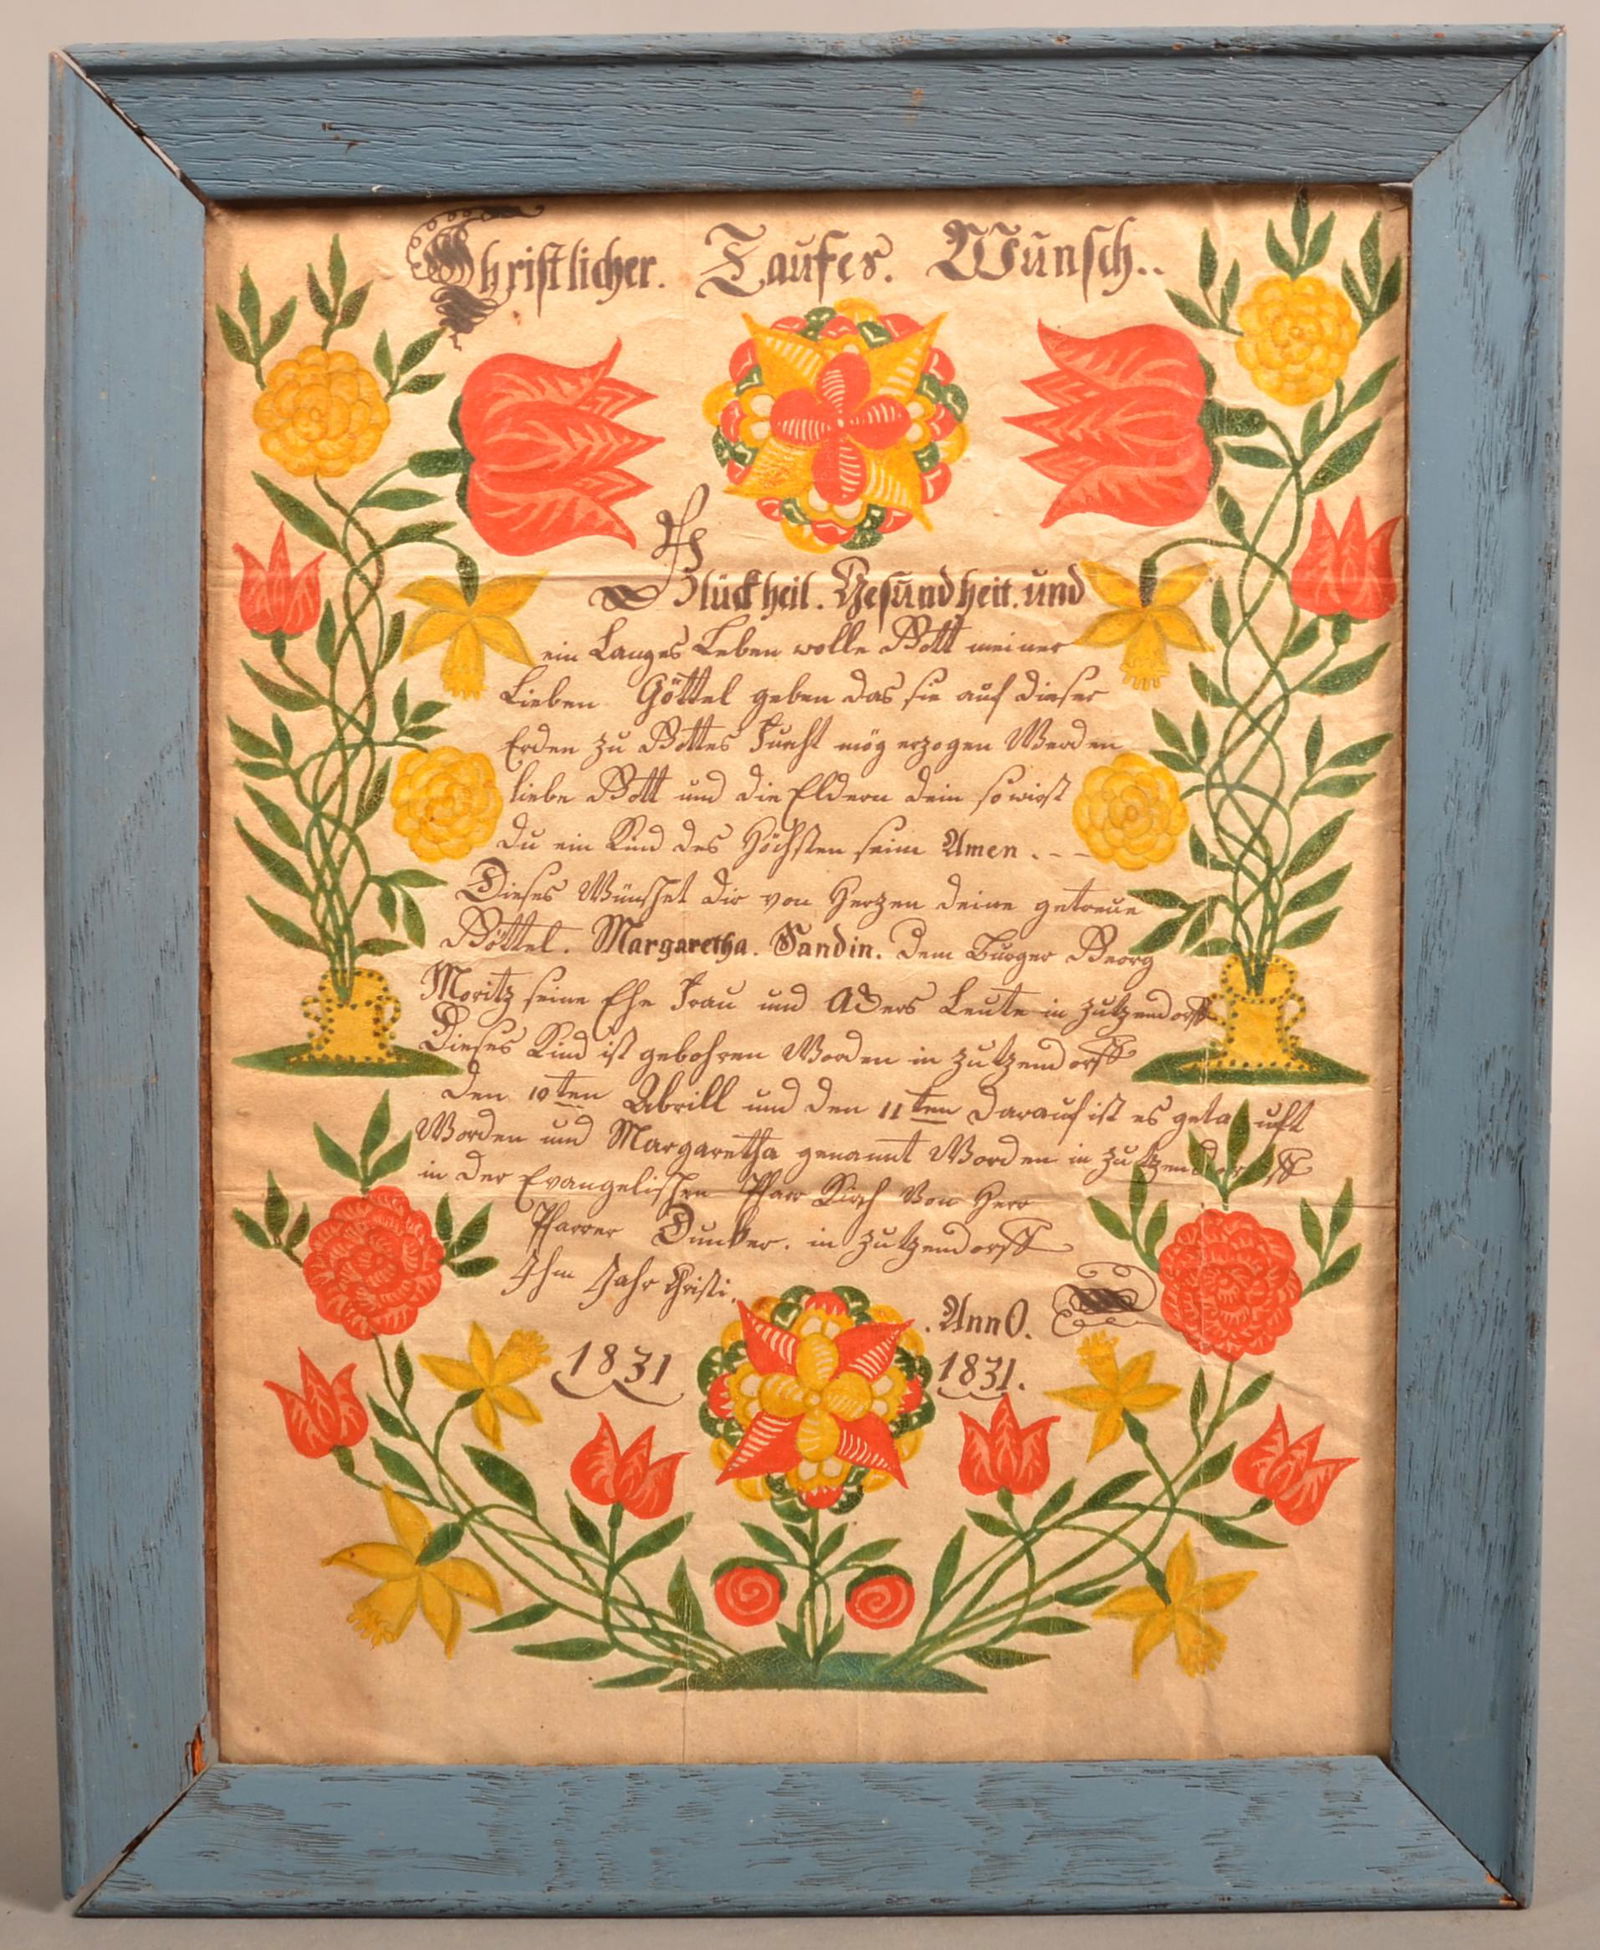 Christlicher. Taufes. Wünsch..
Glück heil. Gesundheit. und
ein Langes Leben wolle Gott meiner
Lieben Göttel geben das sie auf dieser
Erden zu Gottes Furcht mög erzogen Werden
liebe Gott und die Eldern dein so wirst
du ein Kind des Höchsten sein Amen . - -
Dieses Wünschet dir von Herzen deine getreue
Göttel. Margaretha. Sandin. dem Burger Georg
Moritz seine Ehe Frau und Ackers Leute in Zutzendorff
Dieses Kind ist gebohren Worden in Zutzendorff
den 10ten Abrill und den 11ten darauf ist es getauft
Worden und Margaretha genannt Worden in Zutzendorff
in der Evangelischen Pfarr Kirch Von Herr
Pfarrer Dunker. in Zutzendorff
Ihm Jahr Christi.
. AnnO.
1831 1831.